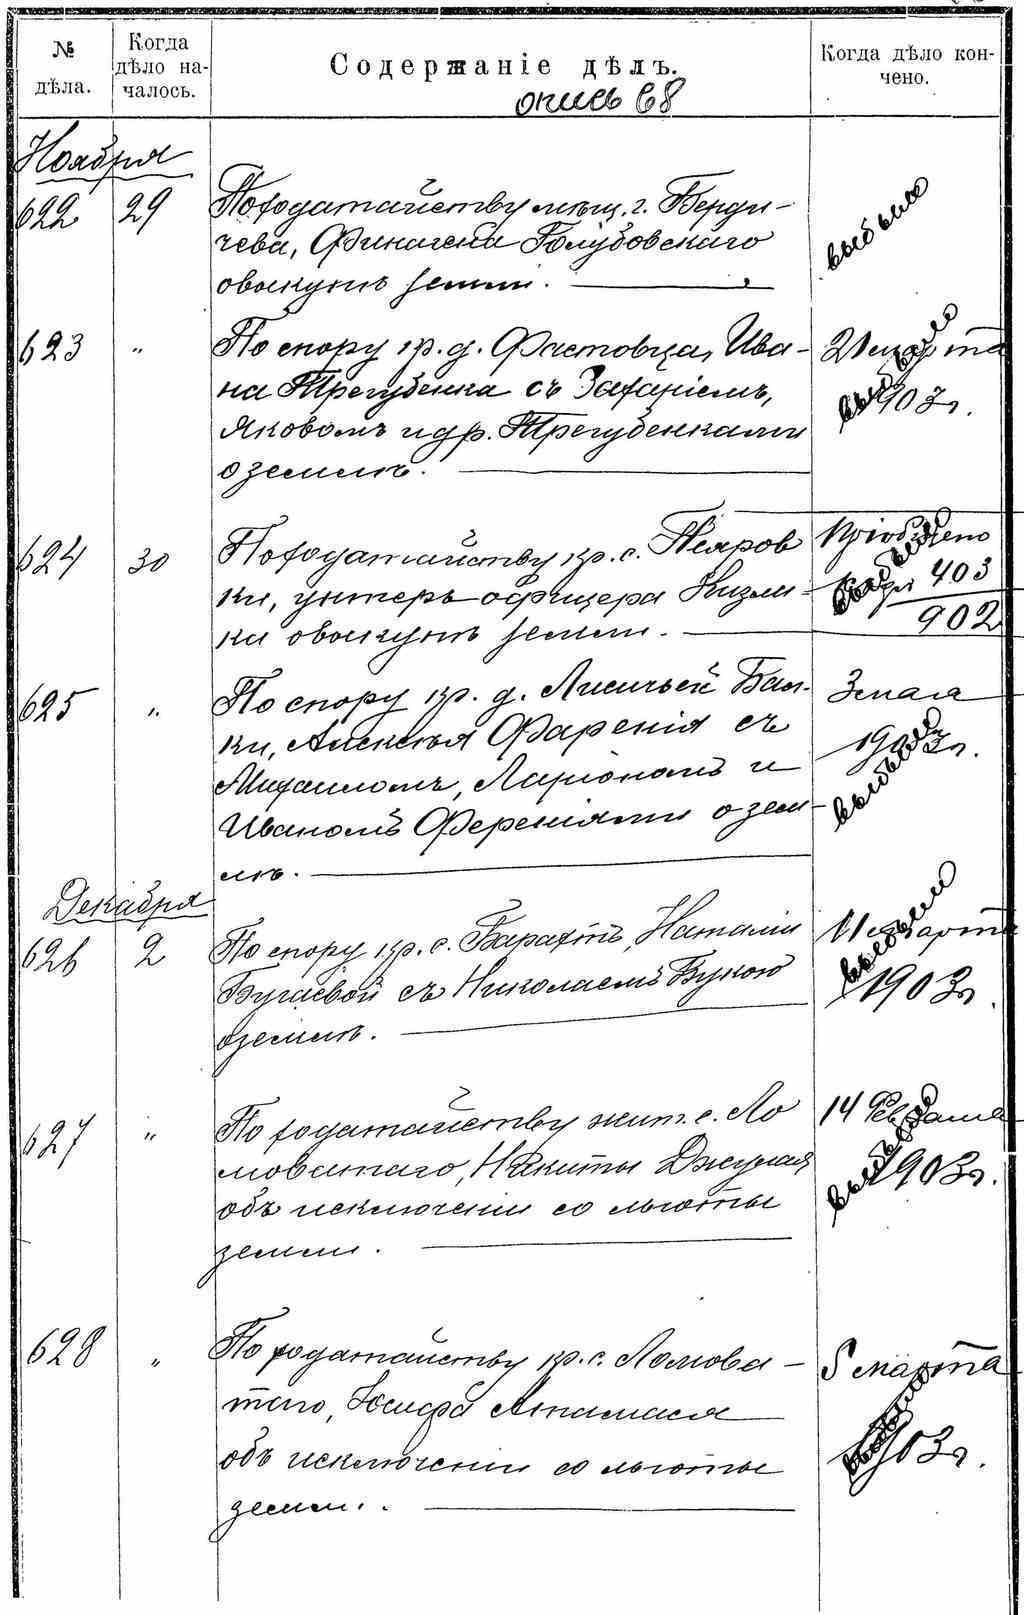 № дѣла.
Когда дѣло на-
чалось.
Содержаніе дѣлъ.
Когда дѣло кон-
чено.
опись 68
Ноября
622 29 По ходатайству мѣщ. г. Берди-
чева, Голубовскаго
о выкупѣ земли.
выбыло
623 " По спору кр. д. Фастовца, Ива-
на Трегубенка съ Захаріемъ,
Яковомъ и др. Трегубенками
о землѣ.
21 марта
903 г.
выбыло
624 30 По ходатайству кр. с.
ки, унтеръ-офицера
ка о выкупѣ земли.
Пріобщено
къ 403
902
выбыло
625 " По спору кр. д. Лисичьей Бал-
ки, Алексѣя Фаренія съ
Михаиломъ, Ларіономъ и
Иваномъ Ференіями о зем-
лѣ.
3 мая
1903 г.
выбыло
Декабря
626 2 По спору кр. с. Барахтъ, Наталіи
Бугаевой съ Николаемъ Букою
о землѣ.
11 марта
1903 г.
выбыло
627 " По ходатайству жит. с. Ло
моватаго, Никиты
объ исключеніи со льготы
земли.
14 Февраля
1903 г.
выбыло
628 " По ходатайству кр. с. Ломова-
таго, Іосифа Апанаса
объ исключеніи со льготы
земли.
5 марта
1903 г.
выбыло